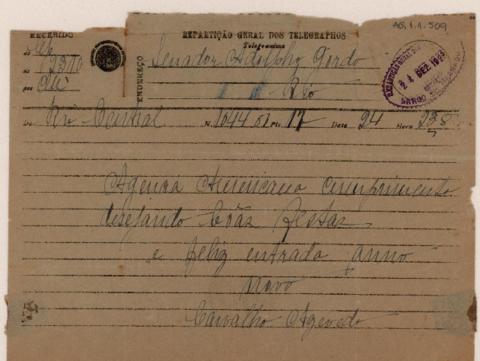 AG.1.1.509
RECEBIDO
REPARTIÇÃO GERAL DOS TELEGRAPHOS
Telegramma
ENDEREÇO
Senador Adolpho Gordo
Rio
24 DEZ
De Rio Central N. 1044 Pls 17 Data 24 Hora 235
Agencia Americana cumprimenta
desejando Bôas Festas
e feliz entrada anno
novo
Carvalho Azevedo